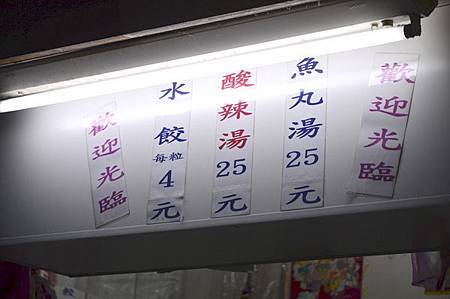 歡迎光臨
魚丸湯25元
酸辣湯25元
水餃每粒4元
歡迎光臨